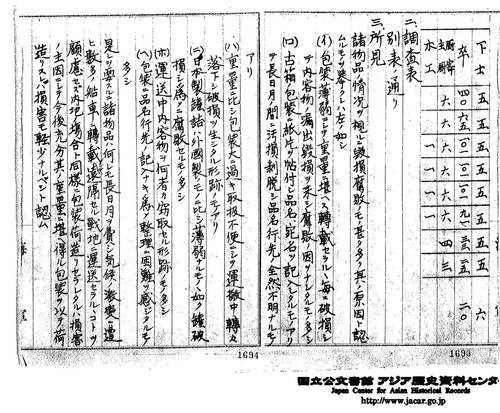 下士 五 五 五 五 五 五 五 六
卒 四〇 六五 一〇一 一〇一 九一 三五 二〇
六 六 六 六 六 四 三
水工 一 一 一 一
二、調査表
別表ノ通リ
三、所見
諸物品ノ情況ヲ視ルニ毀損腐敗ノモノ甚タ多ク其ノ原因ト認
ムルモノヲ挙クレハ左ノ如シ
(イ)包装薄弱ニシテ重量ニ堪ヘス轉載セラルヽ毎ニ破損シ
テ内容物ノ漏出毀損ヲ来シ腐敗ノ因ヲナシタルモノ多シ
(ロ)古箱包装ノ紙片ヲ帖付シ品名宛名ヲ記入シタルモノアリ
テ長日月ノ間ニ汚損剥脱シ品名行先全然不明ナルモノ
アリ
(ハ)重量ニ比シ包装大ニ過キ取扱不便ニシテ運搬中轉々
落下シ破損ヲ生シタル形跡ノモノアリ
(ニ)日本製罐詰ハ外國製ノモノニ比シ薄弱ナルモノヽ如ク罐破
損シ為メニ腐敗セルモノ多シ
(ホ)運送中内容物ヲ何者カ窃取セル形跡ノモノ多シ
(ヘ)包装ニ品名行先ノ記入ナキ為メ整理ニ困難ヲ感シタルモノ多シ
是レヲ要スルニ諸物品ハ何レモ長日月ヲ費シ気候ノ激変ニ遭
ヒ数多ノ船車ニ轉載遠隔セル戦地ニ運送セラルヽコトヲ
顧慮セズ内地ノ場合ト同様ノ包装荷造リセラレタルハ損害
ノ主因ニシテ今後充分其ノ重量ニ堪ヘ得ル包装ヲ以テ荷
造リスレハ損害モ軽少ナルベシト認ム
1693
1694
国立公文書館 アジア歴史資料センター
Japan Center for Asian Historical Records
http://www.jacar.go.jp